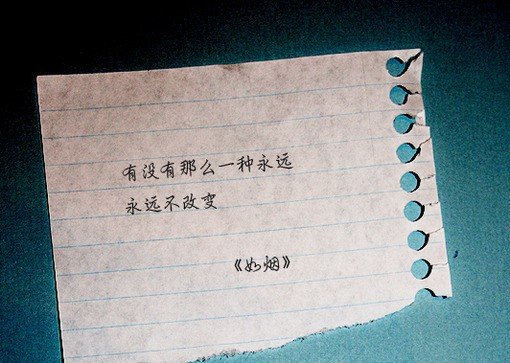 有没有那么一种永远
永远不改变
《如烟》